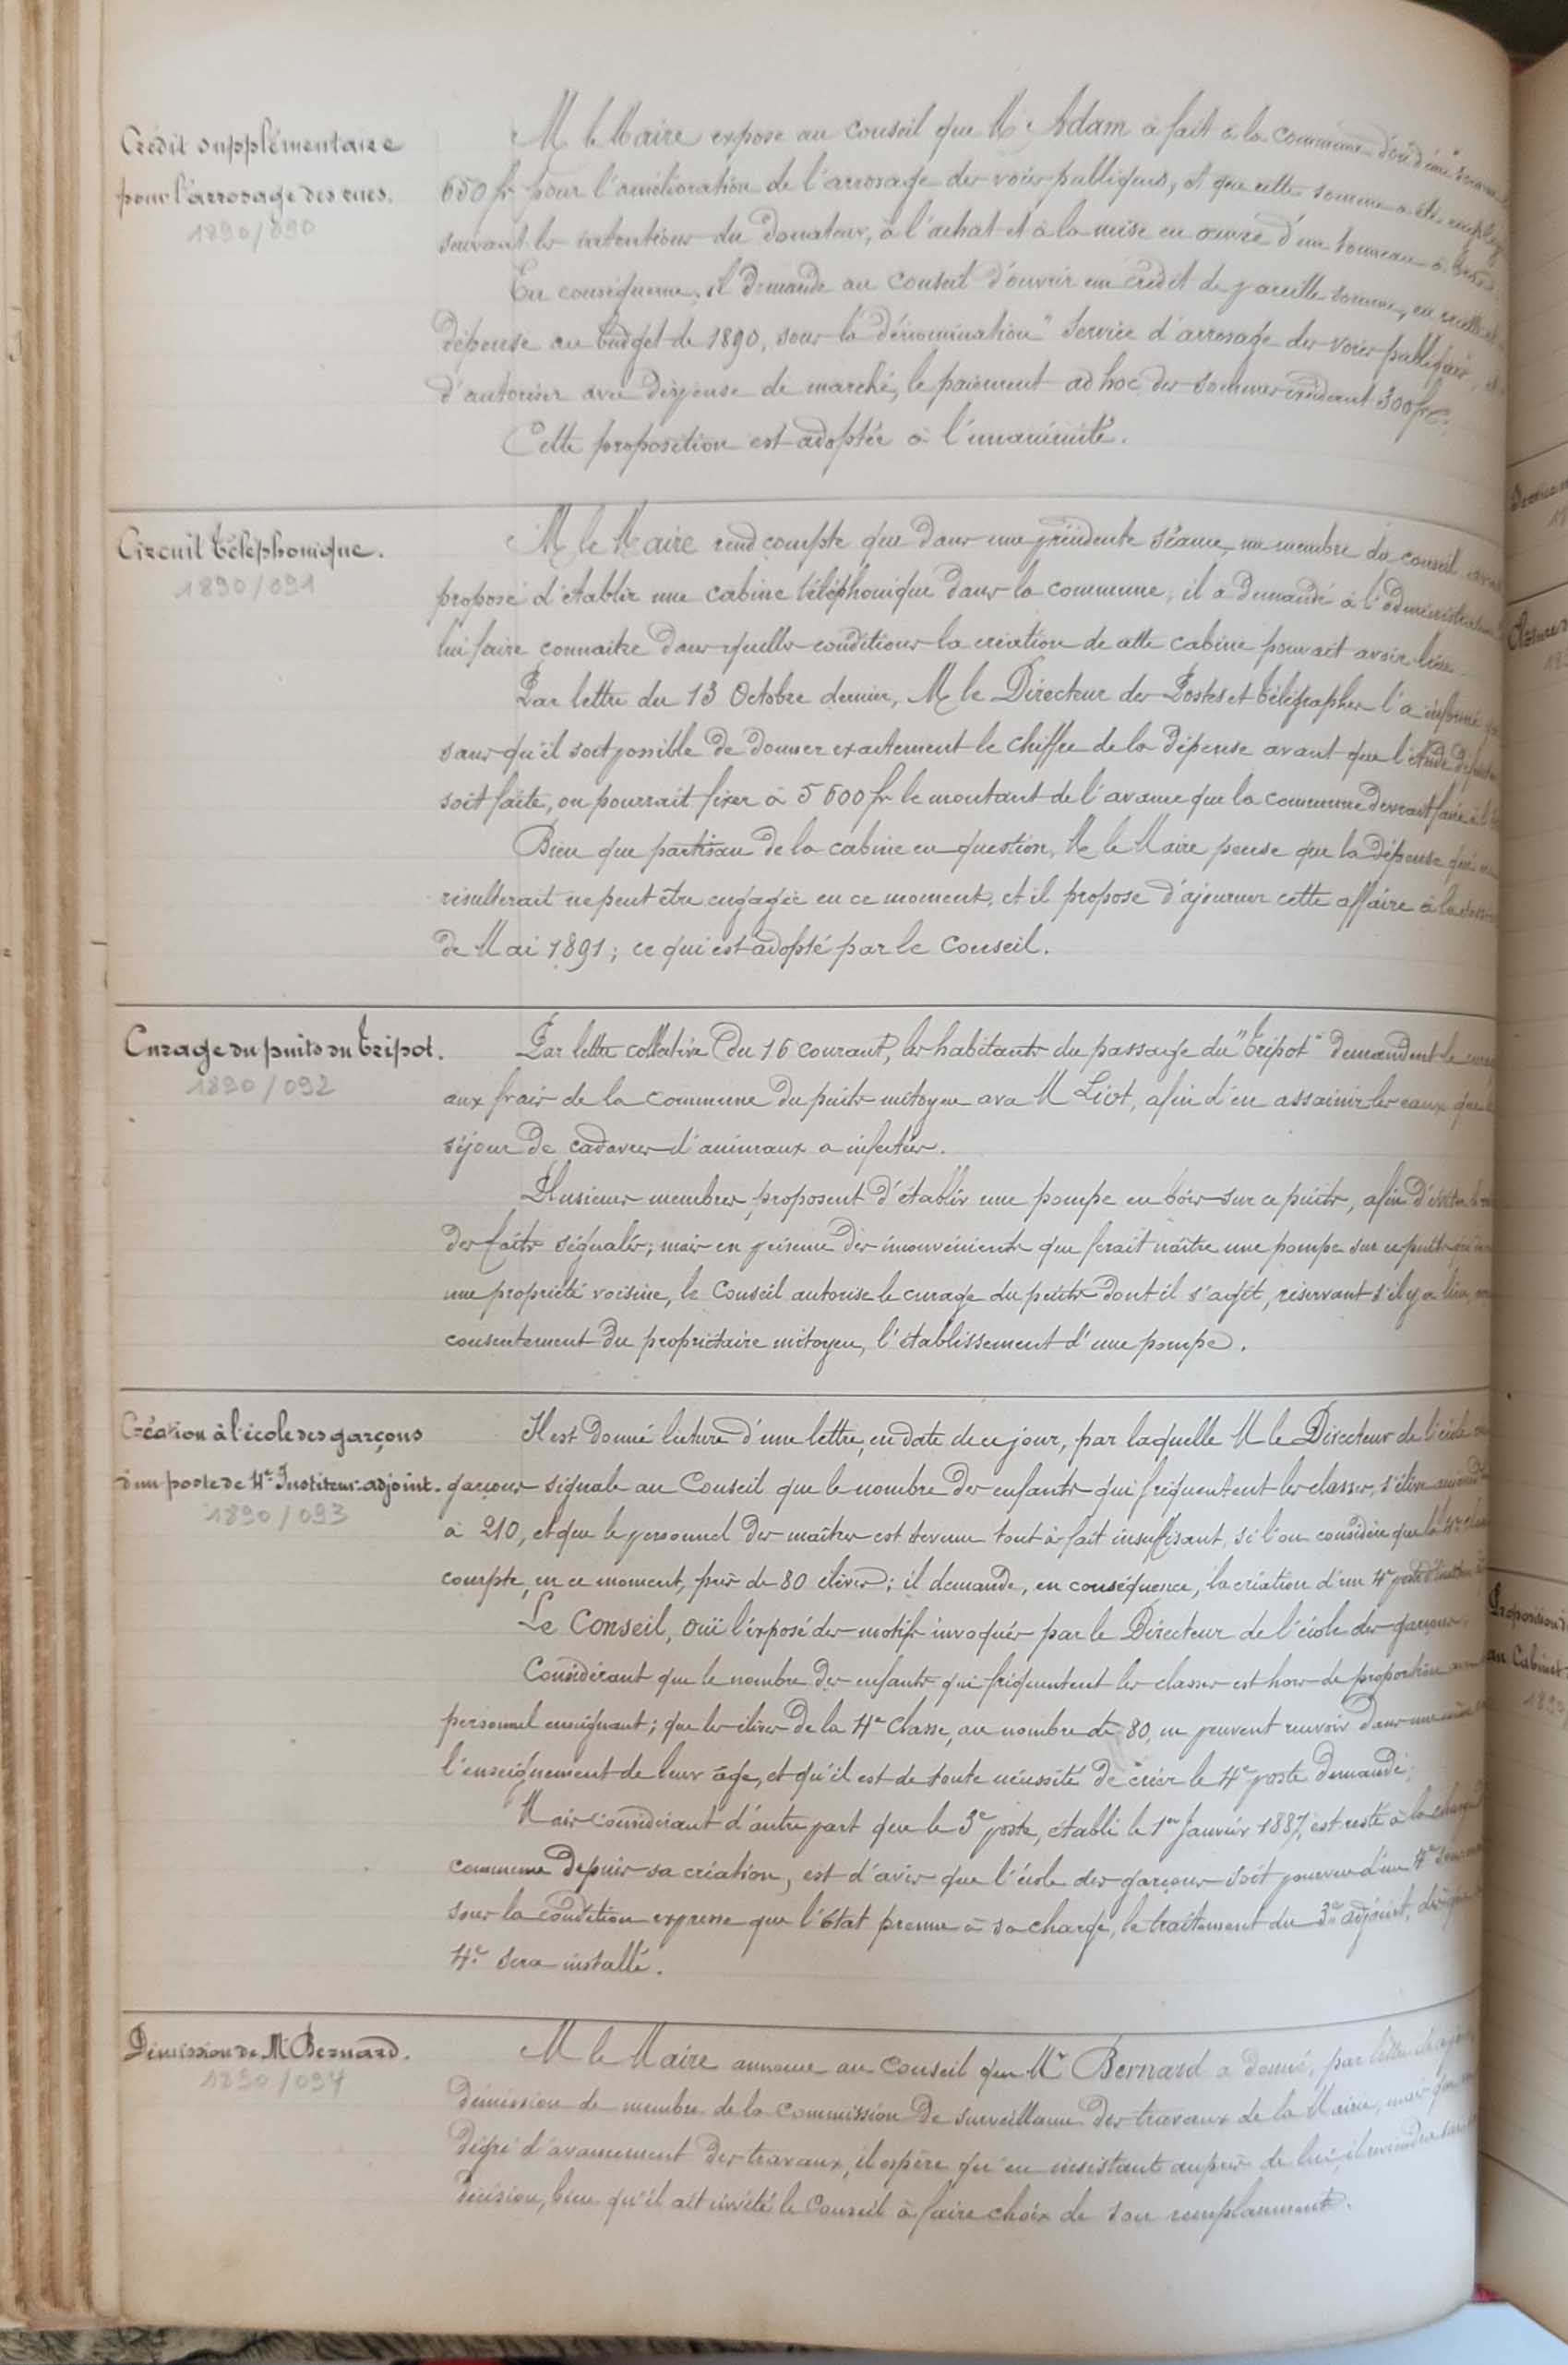 Crédit supplémentaire
pour l'arrosage des rues.
1890/090
M le Maire expose au conseil que M Adam a fait à la commune don d'une
650 fr pour l'amélioration de l'arrosage des voies publiques, et que cette somme a été
suivant les intentions du donateur, à l'achat et à la mise en œuvre d'un tonneau à bras.
En conséquence, il demande au Conseil d'ouvrir un crédit de pareille somme, en
dépense au budget de 1890, sous la dénomination "Service d'arrosage des voies publiques,
d'autoriser avec dispense de marché, le paiement ad hoc des sommes excédant 300 fr.
Cette proposition est adoptée à l'unanimité.
Circuit téléphonique.
1890/091
M le Maire rend compte que dans une précédente séance, un membre du conseil
proposé d'établir une cabine téléphonique dans la commune, il a demandé à l'administration
lui faire connaitre dans quelles conditions la création de cette cabine pouvait avoir lieu.
Par lettre du 13 Octobre dernier, M le Directeur des Postes et télégraphes l'a informé
sans qu'il soit possible de donner exactement le chiffre de la dépense avant que l'étude
soit faite, on pourrait fixer à 5600 fr le montant de l'avance que la commune devrait faire
Bien que partisan de la cabine en question, M le Maire pense que la dépense qui
résulterait ne peut être engagée en ce moment, et il propose d'ajourner cette affaire à la
de Mai 1891; ce qui est adopté par le Conseil.
Curage du puits du Tripot.
1890/092
Par lettre collective du 16 courant, les habitants du passage du "Tripot" demandent le
aux frais de la commune du puits mitoyen avec M Liot, afin d'en assainir les eaux que
séjour de cadavres d'animaux a infectées.
Plusieurs membres proposent d'établir une pompe en bois sur ce puits, afin d'éviter
des faits signalés; mais en présence des inconvénients que ferait naître une pompe sur ce puits
une propriété voisine, le Conseil autorise le curage du puits dont il s'agit, réservant s'il y a lieu,
consentement du propriétaire mitoyen, l'établissement d'une pompe.
Création à l'école des garçons
d'un poste de 4e Instituteur-adjoint.
1890/093
Il est donné lecture d'une lettre, en date de ce jour, par laquelle M le Directeur de l'école
garçons signale au Conseil que le nombre des enfants qui fréquentent les classes, s'élève
à 210, et que le personnel des maîtres est devenu tout à fait insuffisant, si l'on considère que la 4e
compte, en ce moment, près de 80 élèves; il demande, en conséquence, la création d'un 4e poste
Le Conseil, ouï l'exposé des motifs invoqués par le Directeur de l'école des garçons.
Considérant que le nombre des enfants qui fréquentent les classes est hors de proportion
personnel enseignant; que les élèves de la 4e Classe, au nombre de 80, ne peuvent recevoir dans
l'enseignement de leur âge, et qu'il est de toute nécessité de créer le 4e poste demandé;
Mais considérant d'autre part que le 3e poste, établi le 1er Janvier 1887, est resté à la charge
commune depuis sa création, est d'avis que l'école des garçons soit pourvue d'un 4e
sous la condition expresse que l'Etat prenne à sa charge, le traitement du 3e adjoint,
4e sera installé.
Démission de M Bernard.
1890/094
M le Maire annonce au Conseil que Mr Bernard a donné, par lettre
démission de membre de la commission de surveillance des travaux de la Mairie, mais
degré d'avancement des travaux, il espère qu'en insistant auprès de lui, il reviendra
décision, bien qu'il ait invité le Conseil à faire choix de son remplaçant.